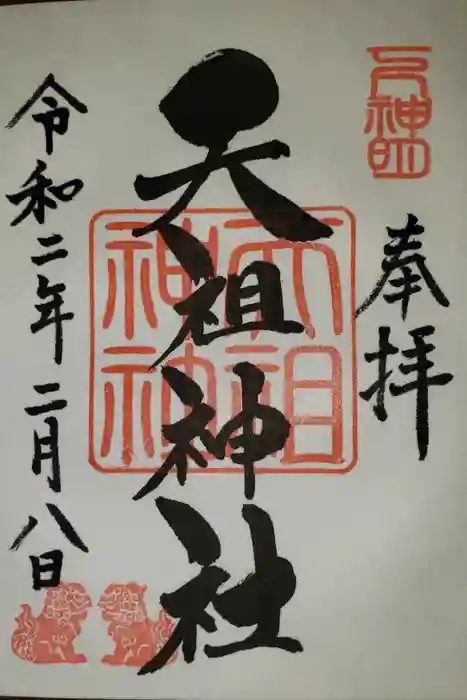 奉拝
天祖神社
天祖神社
令和二年二月八日